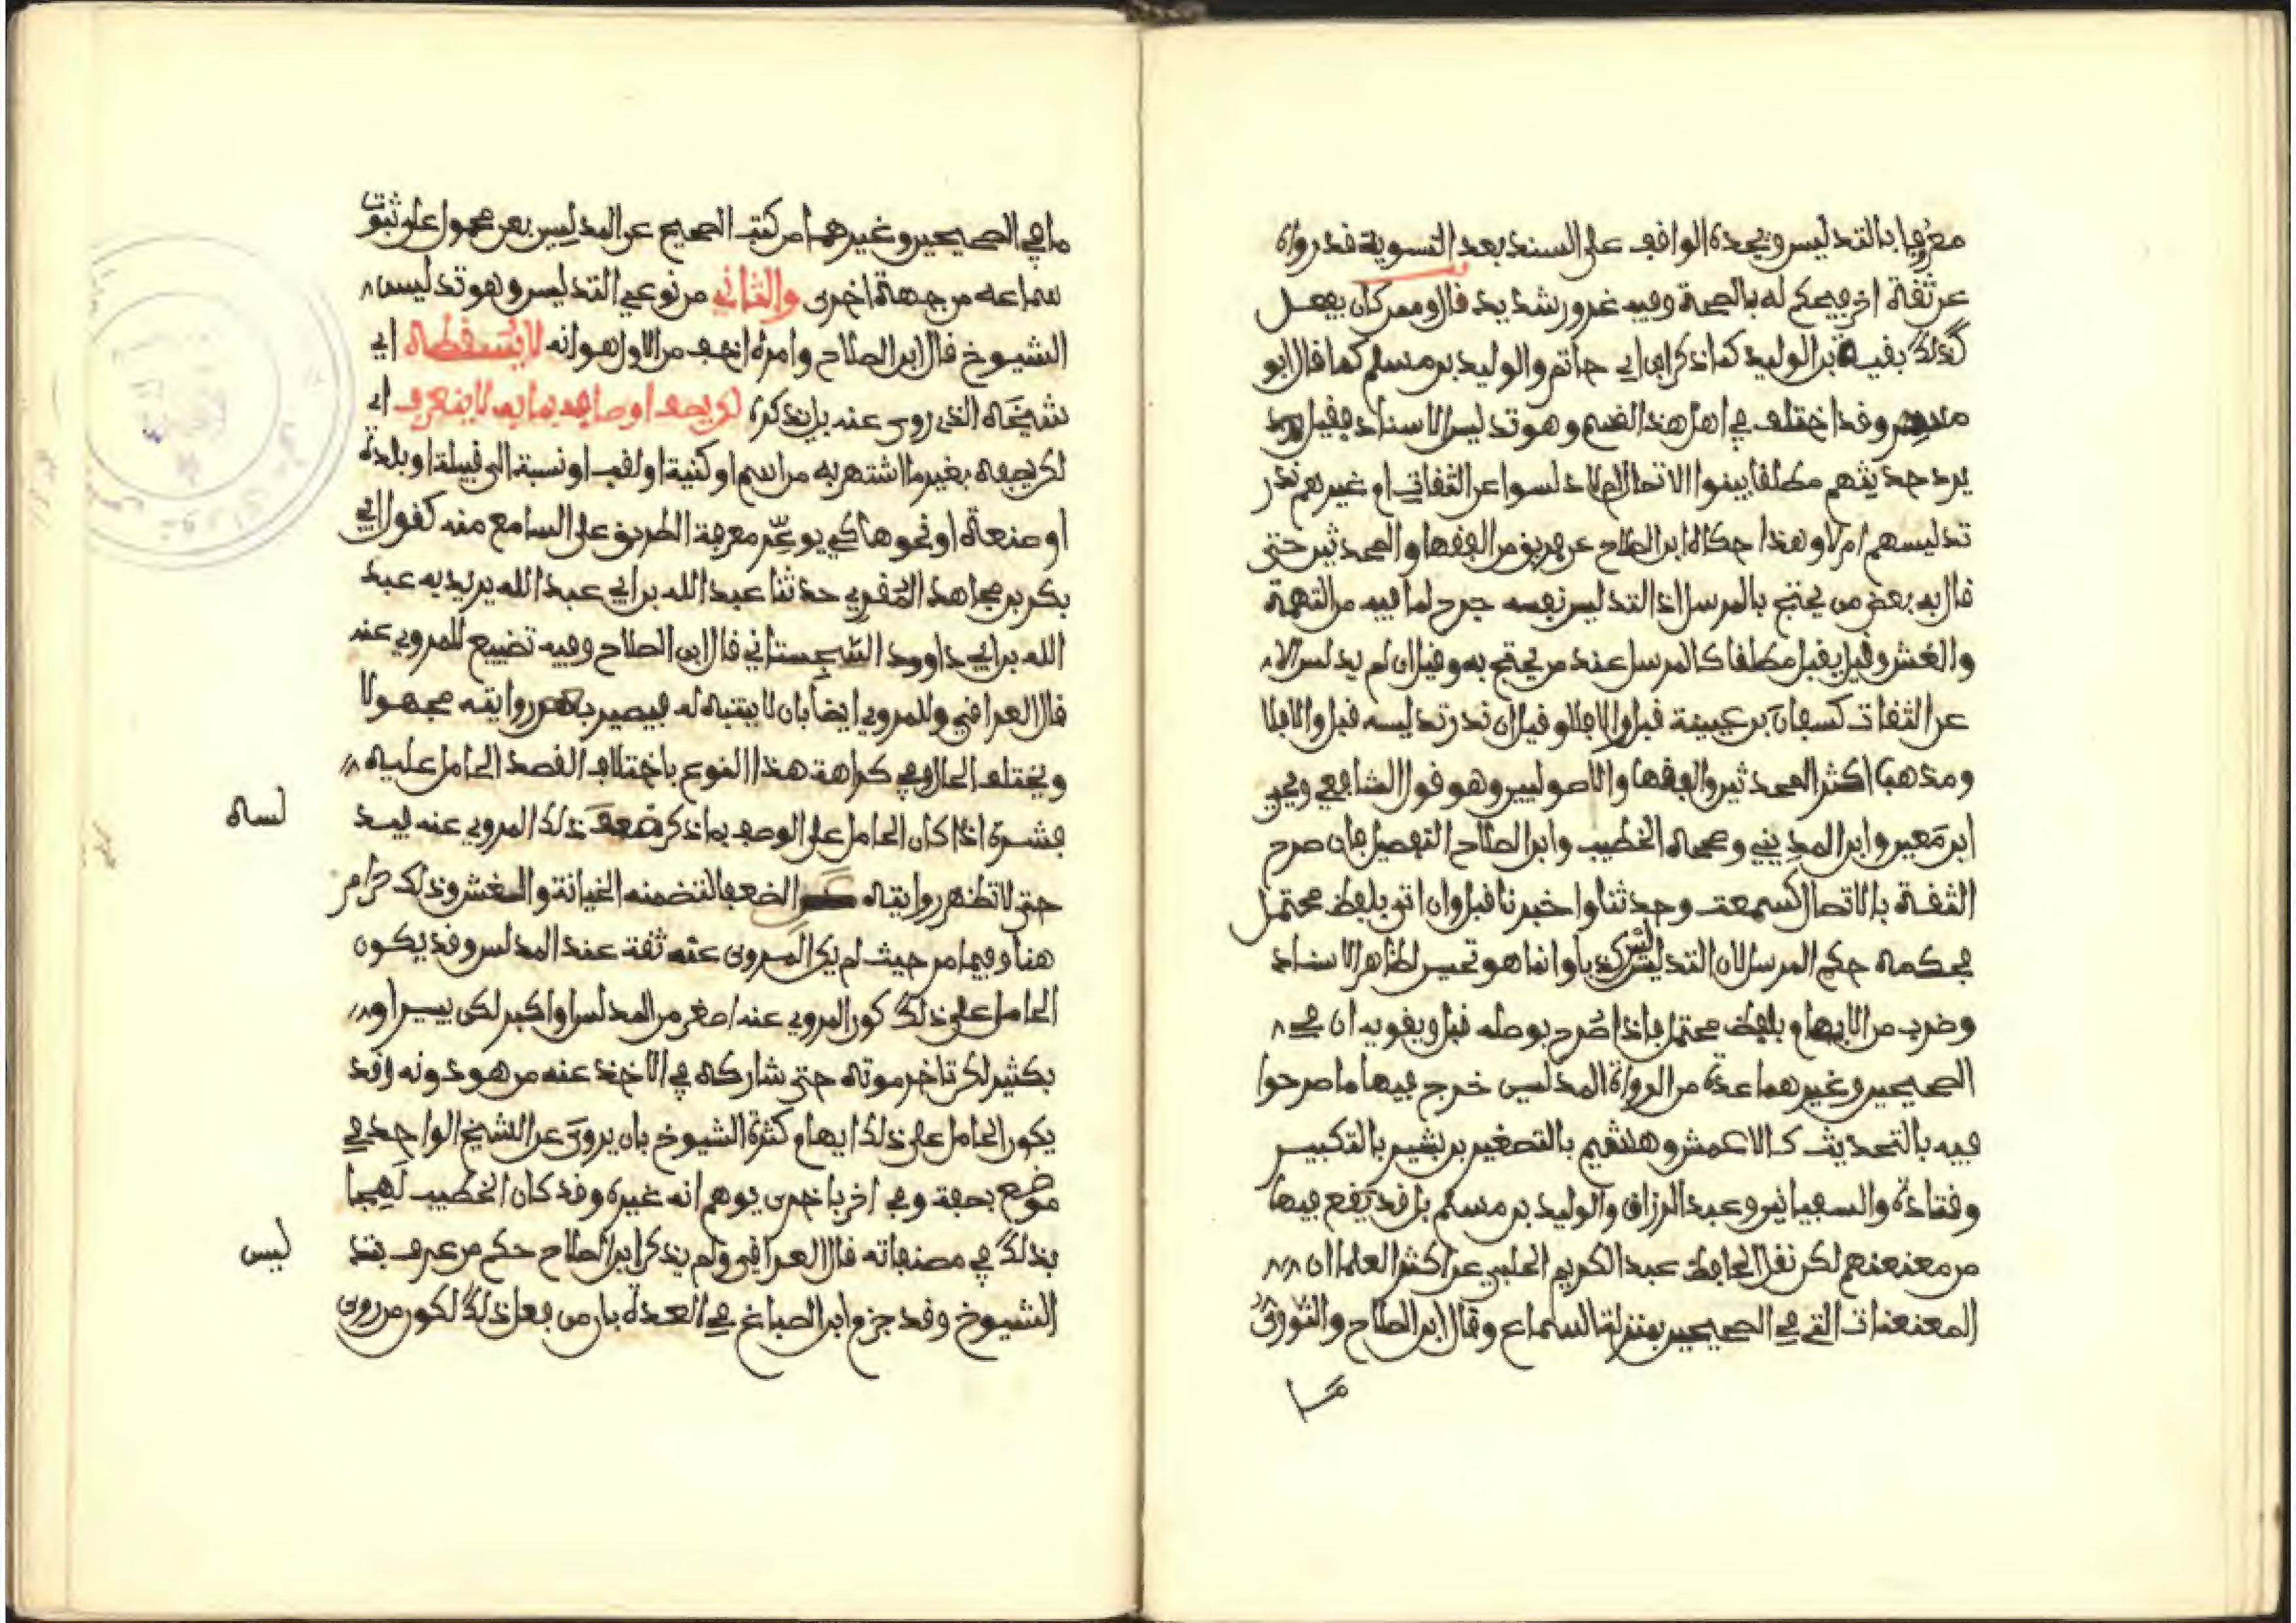 معروفا بالتدليس ويجده الواقف على السند بعد التسوية قد رواه
عن ثقة اخر فيحكم له بالصحة وفيه غرور شديد قال وممن كان يفعل
كذلك بقية بن الوليد كما ذكر ابن ابي حاتم والوليد بن مسلم كما قال ابو
مسهر وقد اختلف في اهل هذا القسم وهو تدليس الاسناد فقيل يرد
يرد حديثهم مطلقا بينوا الاتصال ام لا دلسوا عن الثقات ام غيرهم ندر
تدليسهم ام لا وهذا حكاه ابن الصلاح عن فريق من الفقها والمحدثين حتى
قال به بعض من يحتج بالمرسل اذ التدليس نفسه جرح لما فيه من التهمة
والغش وقيل يقبل مطلقا كالمرسل عند من يحتج به وقيل ان لم يدلس الا
عن الثقات كسفيان بن عيينة قبل والا فلا وقيل ان ندر تدليسه قبل والا فلا
ومذهب اكثر المحدثين والفقها والاصوليين وهو قول الشافعي ويحيى
ابن معين وابن المديني وصححه الخطيب وابن الصلاح التفصيل فان صرح
الثقة بالاتصال كسمعت وحدثنا واخبرنا قبل وان اتى بلفظ محتمل
فحكمه حكم المرسل لان التدليس ليس كذبا وانما هو تحسين لظاهر الاسناد
وضرب من الايهام بلفظ محتمل فاذا صرح بوصله قبل ويقويه ان في
الصحيحين وغيرهما عدة من الرواة المدلسين خرج فيها ما صرحوا
فيه بالتحديث كالاعمش وهشيم بالتصغير بن بشير بالتكبير
وقتادة والسفيانين وعبد الرزاق والوليد بن مسلم بل قد يقع فيها
من معنعنهم لكن نقل الحافظ عبد الكريم الحلبي عن اكثر العلما ان
المعنعنات التي في الصحيحين بمنزلة السماع وقال ابن الصلاح والنووي
ما
ما في الصحيحين وغيرهما من كتب الصحيح عن المدلسين بعن محمول على ثبوت
سماعه من جهة اخرى والثاني من نوعي التدليس وهو تدليس
الشيوخ قال ابن الصلاح وامره اخف من الاول هو انه لا يسقطه اي
شيخه الذي روى عنه بل يذكره لكن يصف اوصافه بما به لا ينعرف اي
لكن يصفه بغير ما اشتهر به من اسم او كنية او لقب او نسبة الى قبيلة او بلدة
او صنعة او نحوها كي يوعر معرفة الطريق على السامع منه كقول ابي
بكر بن مجاهد المقري حدثنا عبد الله بن ابي عبد الله يريد به عبد
الله بن ابي داوود السجستاني قال ابن الصلاح وفيه تضييع للمروي عنه
قال العراقي وللمروي ايضا بان لا يتنبه له فيصير بعض رواته مجهولا
ويختلف الحال في كراهة هذا النوع باختلاف القصد الحامل عليه
فشره اذا كان الحامل على الوصف بما ذكر ضعف ذلك المروي عنه فيد
لسه
حتى لا تظهر روايته عن الضعفا لتضمنه الخيانة والغش وذلك حرام
هنا وفيما مر حيث لم يكن المروى عنه ثقة عند المدلس وقد يكون
الحامل على ذلك كون المروي عنه اصغر من المدلس او اكبر لكن بيسير او
بكثير لكن تاخر موته حتى شاركه في الاخذ عنه من هو دونه وقد
يكون الحامل على ذلك ايهام كثرة الشيوخ بان يروى عن الشيخ الواحد في
موضع بصفة وفي اخر باخرى يوهم انه غيره وقد كان الخطيب لهجا
بذلك في مصنفاته قال العراقي ولم يذكر ابن الصلاح حكم من عرف بتد
ليس
الشيوخ وقد جزم ابن الصباغ في العدة بان من فعل ذلك لكون من روى